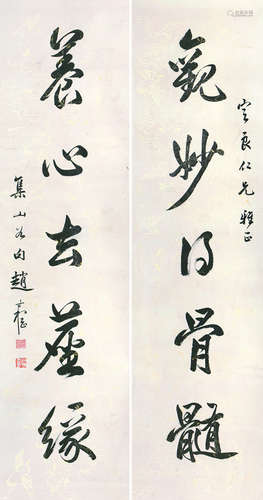 良仁兄雅正
觀妙得骨髓
養心去塵緣
集山谷句趙